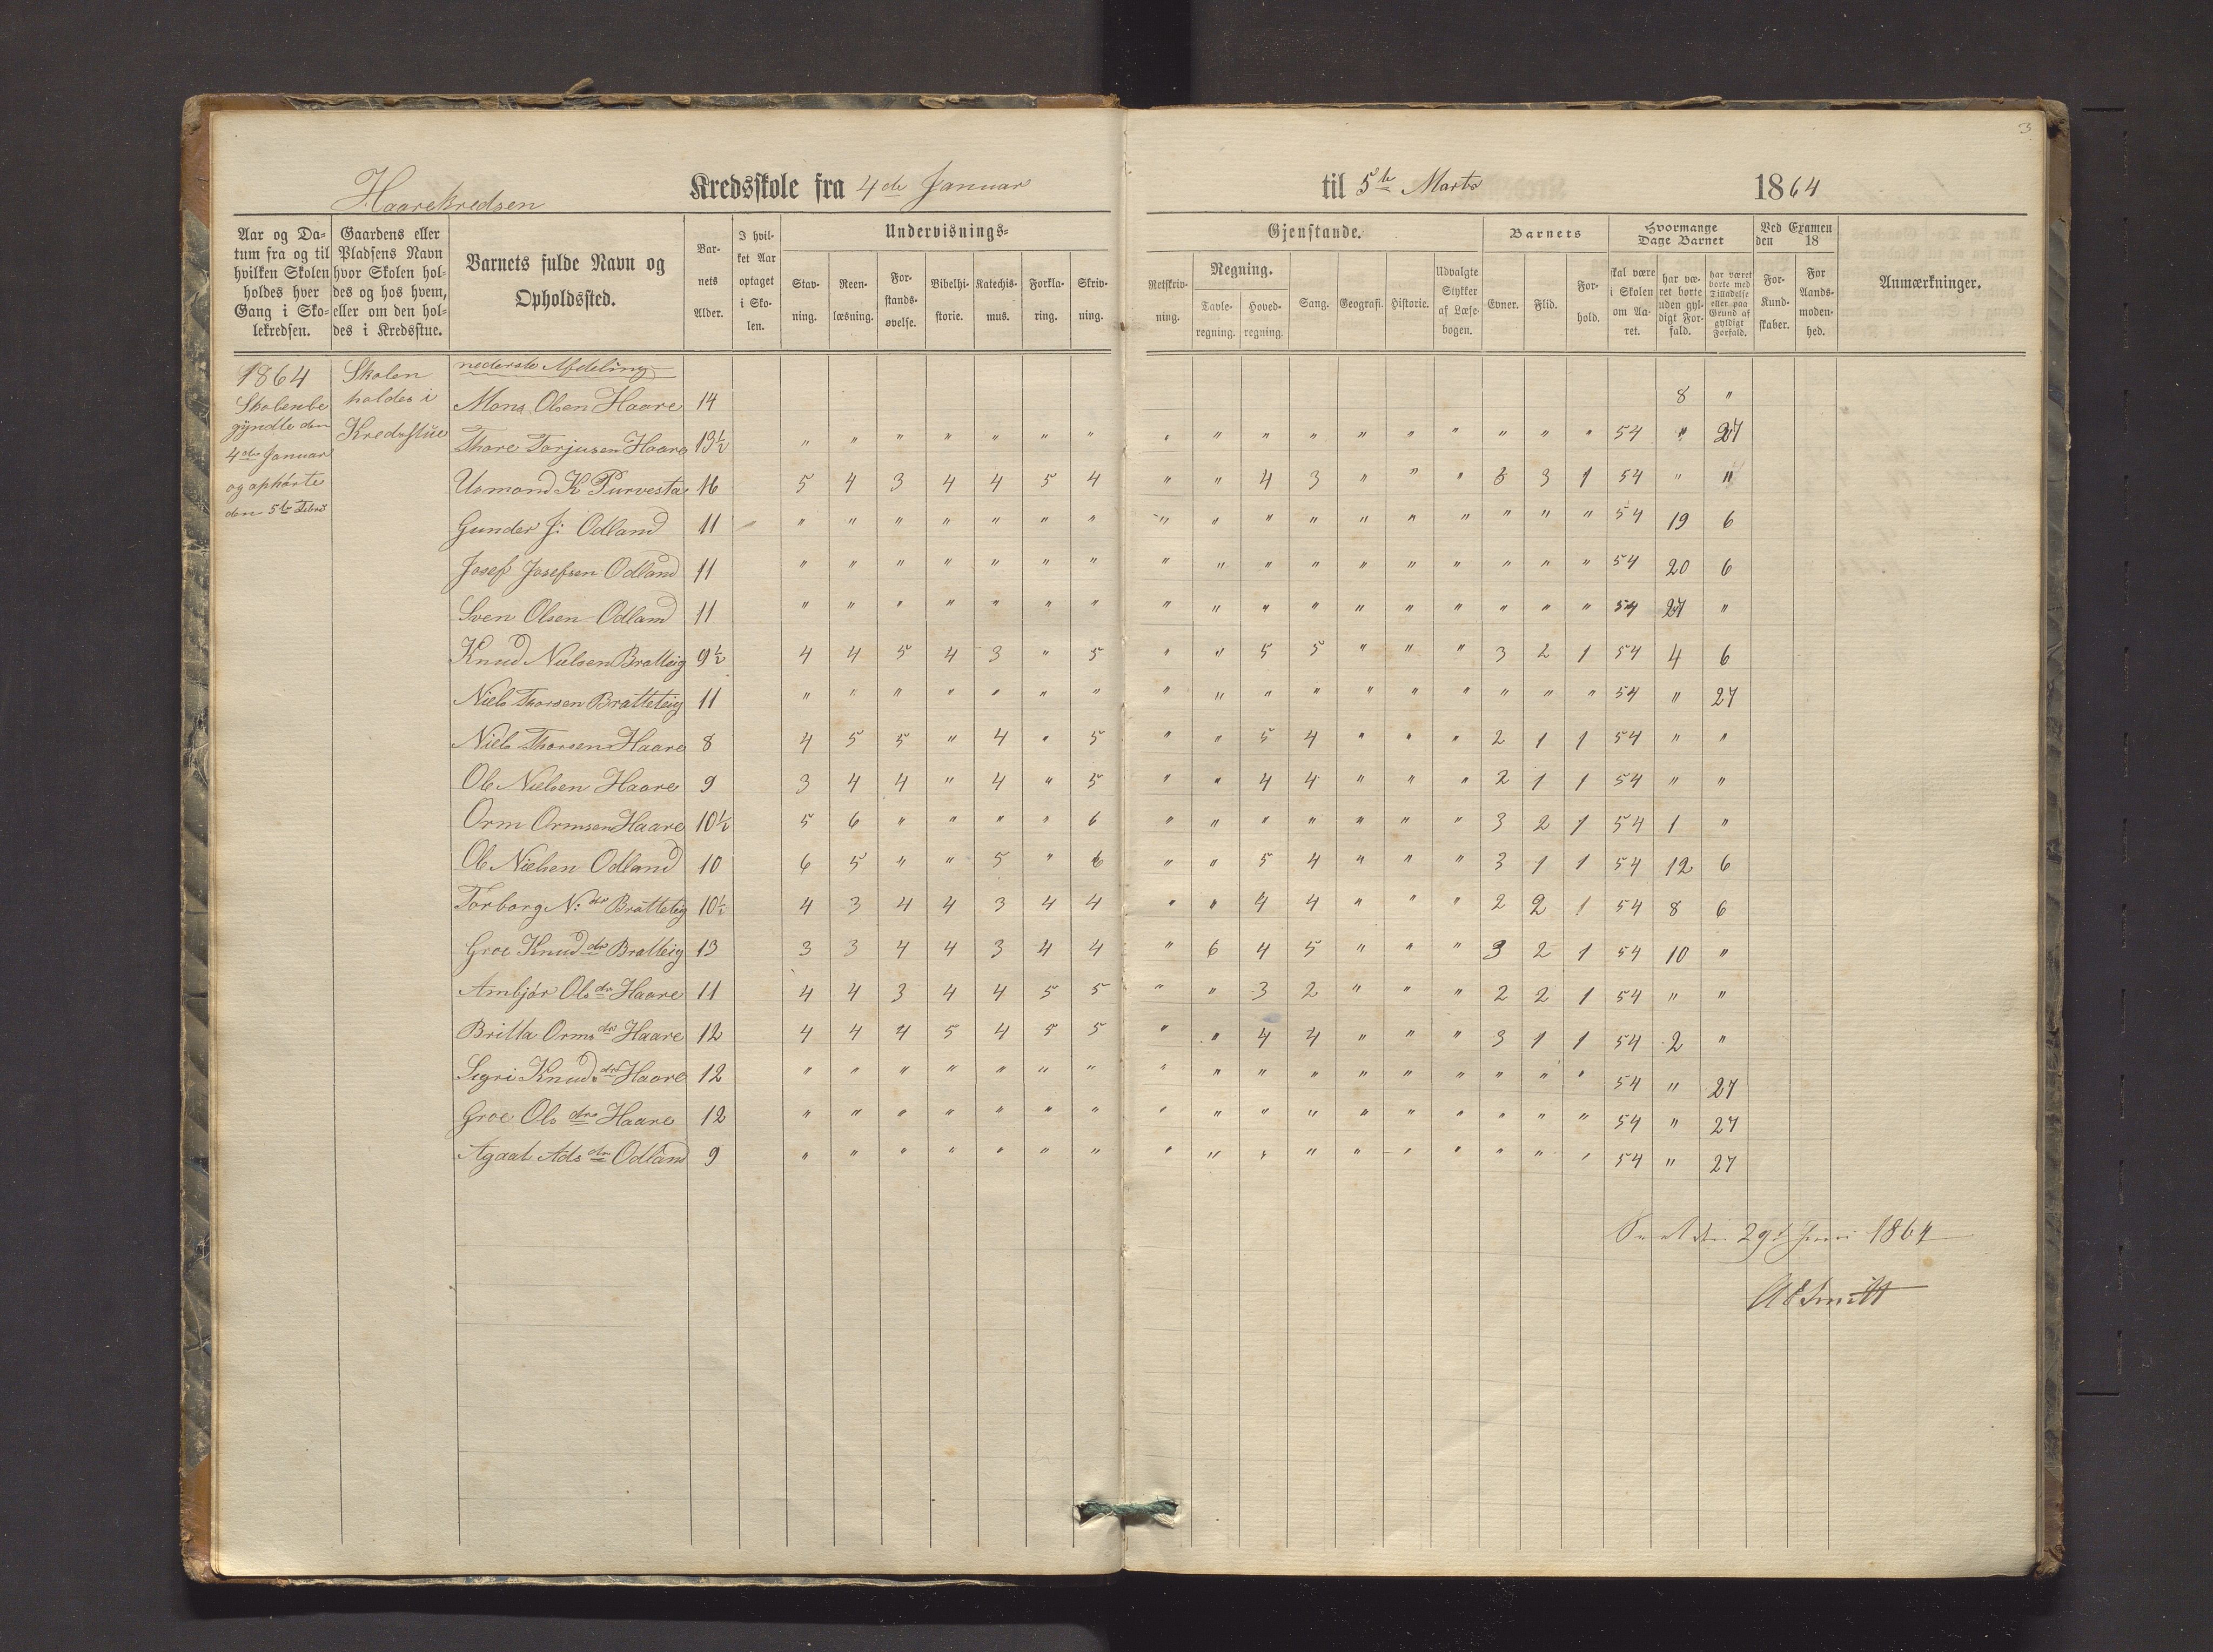 3
Haarekredsen Kredsskole fra 4de Januar til 5te Marts 1864
Aar og Da-
tum fra og til
hvilken Skolen
holdes hver
Gang i Sko-
lekredsen.
Gaardens eller
Pladsens Navn
hvor Skolen hol-
des og hos hvem,
eller om den hol-
des i Kredsstue.
Barnets fulde Navn og
Opholdssted.
Bar-
nets
Alder.
I hvil-
ket Aar
optaget
i Sko-
len.
Undervisnings-
Stav-
ning.
Reen-
læsning.
For-
stands-
øvelse.
Bibelhi-
storie.
Katechis-
mus.
Forkla-
ring.
Skriv-
ning.
Gjenstande.
Retskriv-
ning.
Regning.
Tavle-
regning.
Hoved-
regning.
Sang.
Geografi.
Historie.
Udvalgte
Stykker
af Læse-
bogen.
Barnets
Evner.
Flid.
For-
hold.
Hvormange
Dage Barnet
skal være
i Skolen
om Aa-
ret.
har væ-
ret borte
uden gyl-
digt For-
fald.
har været
borte med
Tilladelse
eller paa
Grund af
gyldigt
Forfald.
Ved Examen
den 18
For-
Kund-
skaber.
For
Aands-
moden-
hed.
Anmærkninger.
1864
Skolen be
gyndte den
4de Januar
og ophørte
den 5te Febr
Skolen
holdes i
Kredsstue
nederste Afdeling
Mons Olsen Haare 14 8 "
Thore Torjusen Haare 13½ " " " " " " " " " " " " " " " " " 54 " 27
Usmond K Purvesta 16 5 4 3 4 4 5 4 " " 4 3 " " " 6 3 1 54 " "
Gunder J: Odland 11 " " " " " " " " " " " " " " " " " 54 19 6
Josef Josefsen Odland 11 " " " " " " " " " " " " " " " " " 54 20 6
Sven Olsen Odland 11 " " " " " " " " " " " " " " " " " 54 27 "
Knud Nielsen Bratteig 9½ 4 4 5 4 3 " 5 " " 5 5 " " " 3 2 1 54 4 6
Niels Thorsen Bratteteig 11 " " " " " " " " " " " " " " " " " 54 " 27
Niels Thorsen Haare 8 4 5 5 " 4 " 5 " " 5 4 " " " 2 1 1 54 " "
Ole Nielsen Haare 9 3 4 4 " 4 " 5 " " 4 4 " " " 2 1 1 54 " "
Orm Ormsen Haare 10½ 5 6 " " " " 6 " " " " " " " 3 2 1 54 1 "
Ole Nielsen Odland 10 6 5 " " 5 " 6 " " 5 4 " " " 3 1 1 54 12 6
Torborg N: dr Brattetig 10½ 4 3 4 4 3 4 4 " " 4 4 " " " 2 2 1 54 8 6
Groe Knud dr Bratteig 13 3 3 4 4 3 4 4 " 6 4 5 " " " 3 2 1 54 10 "
Ambjør Ols dr Haare 11 4 4 3 4 4 5 5 " " 3 2 " " " 2 2 1 54 " "
Britta Orms dr Haare 12 4 4 4 5 4 5 5 " " 4 4 " " " 3 1 1 54 2 "
Sigri Knuds dr Haare 12 " " " " " " " " " " " " " " " " " 54 " 27
Groe Ols dr Haare 12 " " " " " " " " " " " " " " " " " 54 " 27
Agaat Ads dr Odland 9 " " " " " " " " " " " " " " " " " 54 " 27
29 Juni 1864